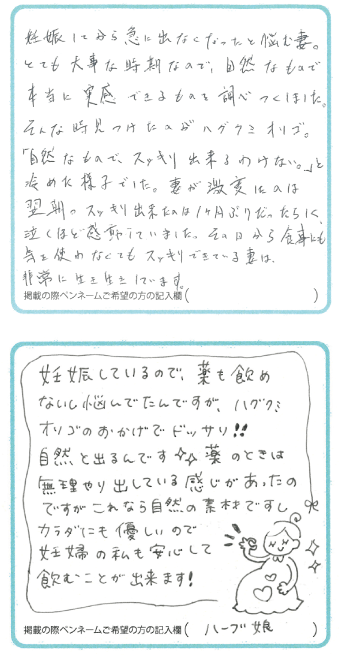 妊娠してから急に出なくなったと悩む妻。
とても大事な時期なので、自然なもので
本当に実感できるものを調べつくしました。
そんな時見つけたのがハグクミオリゴ。
「自然なもので、スッキリ出来るわけない。」と
冷めた様子でした。妻が激変したのは
翌朝。スッキリ出来たのは1ヶ月ぶりだったらしく、
泣くほど感動していました。その日から食事にも
気を使わなくてもスッキリできている妻は、
非常に生き生きしています。
掲載の際ペンネームご希望の方の記入欄( )
妊娠しているので、薬も飲め
ないし悩んでたんですが、ハグクミ
オリゴのおかげでドッサリ!!
自然と出るんです 薬のときは
無理やり出している感じがあったの
ですがこれなら自然の素材ですし
カラダにも優しいので
妊婦の私も安心して
飲むことが出来ます!
掲載の際ペンネームご希望の方の記入欄( ハーブ娘 )